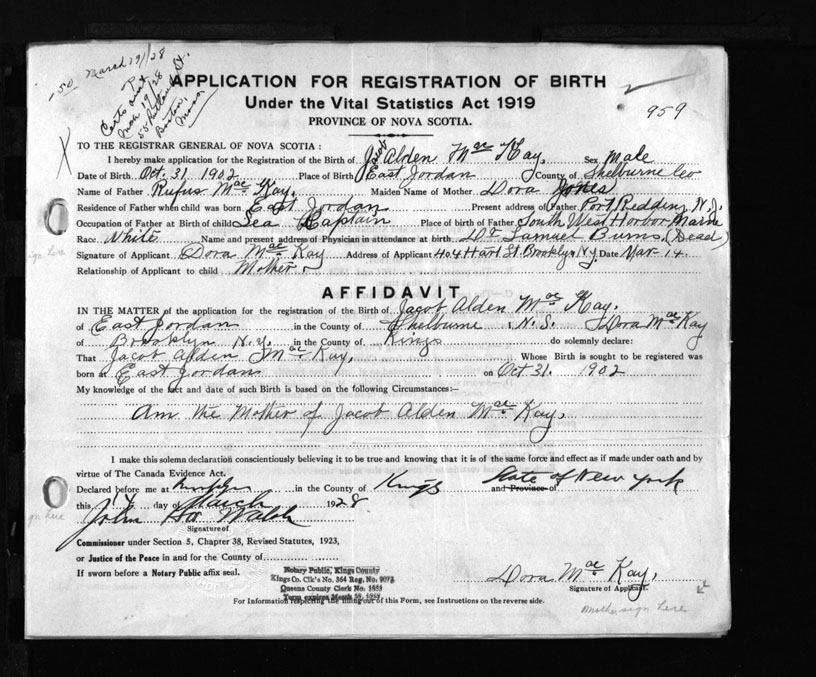 .50 March 19/28
Certs sent
Mar 19/28
Boston,
Mass
APPLICATION FOR REGISTRATION OF BIRTH
Under the Vital Statistics Act 1919
959
PROVINCE OF NOVA SCOTIA.
TO THE REGISTRAR GENERAL OF NOVA SCOTIA :
I hereby make application for the Registration of the Birth of Jacob Alden Mac Kay, Sex Male
Date of Birth Oct. 31 1902 Place of Birth East Jordan County of Shelburne Co
Name of Father Rufus Mac Kay, Maiden Name of Mother Dora Jones
Residence of Father when child was born East Jordan Present address of Father Port Redding N.J.
Occupation of Father at Birth of child Sea Captain Place of birth of Father South West Harbor Maine
Race White Name and present address of Physician in attendance at birth Dr Samuel Burns, (Dead)
Signature of Applicant Dora Mac Kay Address of Applicant 404 Hart St. Brooklyn N.Y. Date Mar 14
Relationship of Applicant to child Mother
AFFIDAVIT
IN THE MATTER of the application for the registration of the Birth of Jacob Alden Mac Kay.
of East Jordan in the County of Shelburne N.S. I Dora Mac Kay
of Brooklyn N.Y. in the County of Kings do solemnly declare:
That Jacob Alden Mac Kay, Whose Birth is sought to be registered was
born at East Jordan on Oct 31. 1902
My knowledge of the fact and date of such Birth is based on the following Circumstances:—
Am the Mother of Jacob Alden Mac Kay,
I make this solemn declaration conscientiously believing it to be true and knowing that it is of the same force and effect as if made under oath and by
virtue of The Canada Evidence Act.
Declared before me at Brooklyn in the County of Kings and Province of State of New York
this 14 day of March 1928
John W Walsh
Signature of
Commissioner under Section 5, Chapter 38, Revised Statutes, 1923,
or Justice of the Peace in and for the County of
If sworn before a Notary Public affix seal.
Notary Public, Kings County
Kings Co. Clk's No. 364 Reg. No. 9072
Queens County Clerk No. 1853
Term expires March 30,
Dora Mac Kay,
Signature of Applicant.
For Information respecting the filling out of this Form, see Instructions on the reverse side.
Mother sign here
sign here
sign here